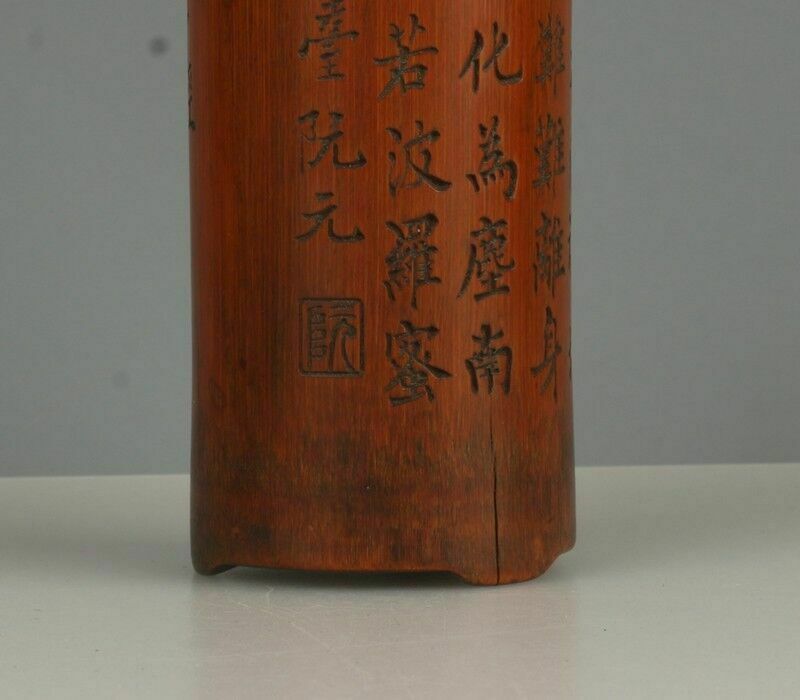 難難離身
化為塵南
若波羅蜜
臺阮元
阮